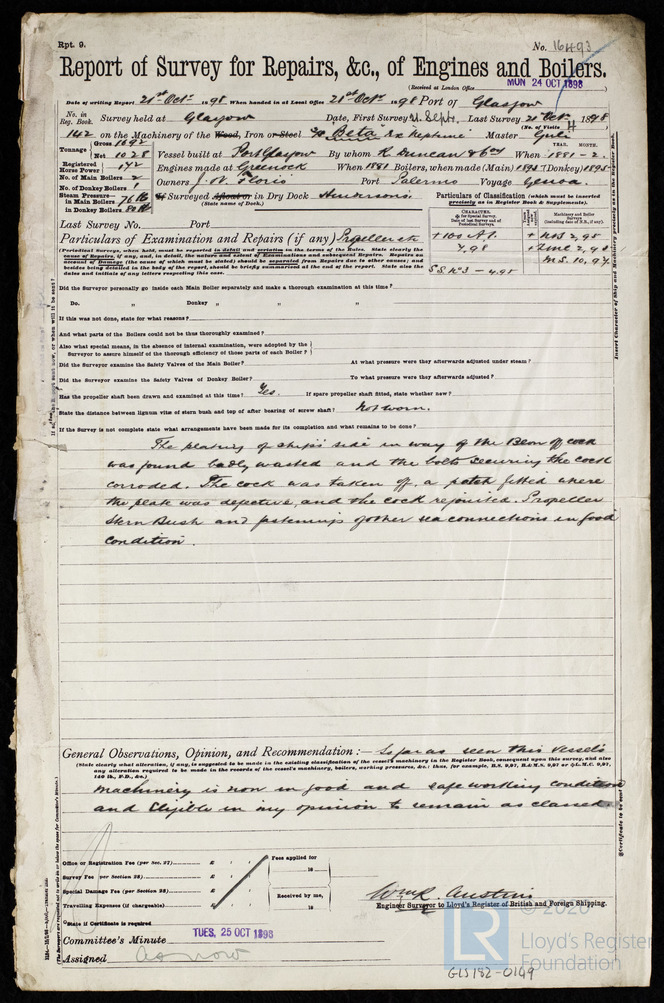 Rpt. 9.
No. 16493
Report of Survey for Repairs, &c., of Engines and Boilers.
(Received at London Office MON 24 OCT 1898)
Date of writing Report 21st Octr 1898 When handed in at Local Office 21st Octr 1898 Port of Glasgow
No. in Reg. Book. Survey held at Glasgow Date, First Survey 21 Sept. Last Survey 21 Octr 1898
(No. of Visits 4)
142 on the Machinery of the Wood, Iron or Steel Beta Ex Nephine Master Guli
Tonnage Gross 1692 Net 1028 Vessel built at Port Glasgow By whom R. Duncan & Coy When 1881-2
YEAR. MONTH.
Registered Horse Power 142 Engines made at Greenock When 1881 Boilers, when made (Main) 1895 (Donkey) 1895
No. of Main Boilers 2
No. of Donkey Boilers 1 Owners Florio Port Palermo Voyage Genoa.
Steam Pressure in Main Boilers 76 lb in Donkey Boilers 80 lb If Surveyed Afloat or in Dry Dock Hendersons
(State name of Dock.)
Particulars of Classification (which must be inserted precisely as in Register Book & Supplements).
Last Survey No. Port
+ 100 A1. + N&B 2,95
7,98
M S. 10,97
S S. No 3 - 4.95
Particulars of Examination and Repairs (if any) Propeller &c
Periodical Surveys, when held, must be reported in detail and seriatim in the terms of the Rules. State clearly the cause of Repairs, if any, and, in detail, the nature and extent of Examinations and subsequent Repairs. Repairs on account of Damage (the cause of which must be stated) should be separated from Repairs due to other causes; and besides being detailed in the body of the report, should be briefly summarised at the end of the report. State also the dates and initials of any letters respecting this case.
Did the Surveyor personally go inside each Main Boiler separately and make a thorough examination at this time?
Do. „ Donkey „ „ „
If this was not done, state for what reasons?
And what parts of the Boilers could not be thus thoroughly examined?
Also what special means, in the absence of internal examination, were adopted by the Surveyor to assure himself of the thorough efficiency of those parts of each Boiler?
Did the Surveyor examine the Safety Valves of the Main Boiler? At what pressure were they afterwards adjusted under steam?
Did the Surveyor examine the Safety Valves of Donkey Boiler? To what pressure were they afterwards adjusted?
Has the propeller shaft been drawn and examined at this time? Yes. If spare propeller shaft fitted, state whether new?
State the distance between lignum vitæ of stern bush and top of after bearing of screw shaft? Not worn.
If the Survey is not complete state what arrangements have been made for its completion and what remains to be done?
The plating of ship's side in way of the Blow off cock
was found badly wasted and the bolts securing the cock
corroded. The cock was taken off, a patch fitted where
the plate was defective, and the cock rejointed. Propeller
Stern Bush and fastenings of other sea connections in good
condition.
General Observations, Opinion, and Recommendation:— So far as seen this vessel's
(State clearly what alteration, if any, is suggested to be made in the existing classification of the vessel's machinery in the Register Book, consequent upon this survey, and also any alteration required to be made in the records of the vessel's machinery, boilers, working pressures, &c.: thus, for example, B.S. 9,97, B.& M.S. 9,97 or + L.M.C. 9,97, 140 lb., F.D., &c.)
machinery is now in good and safe working condition
and Eligible in my opinion to remain as classed
Office or Registration Fee (per Sec. 27) £ Fees applied for
Survey Fee (per Section 28) £ 18
Special Damage Fee (per Section 28) £ Received by me,
Travelling Expenses (if chargeable) £ 18
State if Certificate is required
Wm R Austin
Engineer Surveyor to Lloyd's Register of British and Foreign Shipping.
Committee's Minute TUES. 25 OCT 1898
Assigned as now
LR © 2020
Lloyd's Register
Foundation
GLS182-0149